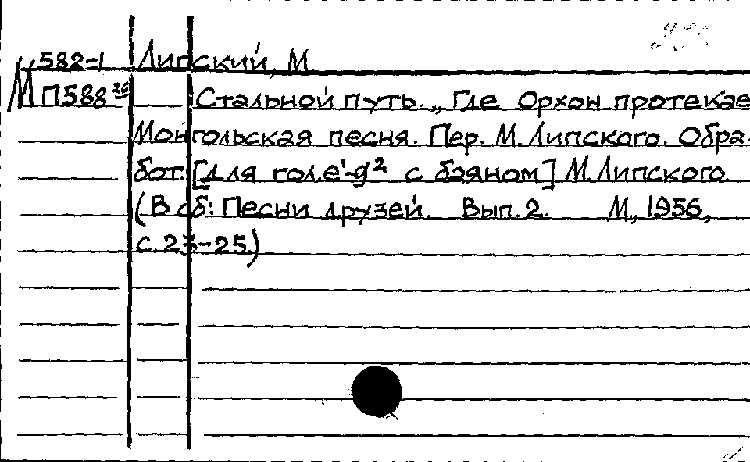 582-1 Липский, М.
М П588 Стальной путь. „Где Орхон протекае
Монгольская песня. Пер. М. Липского. Обра-
бот. [для гол. e'-g² с баяном] М. Липского
(В сб: Песни друзей. Вып. 2. М., 1956,
с. 23-25.)